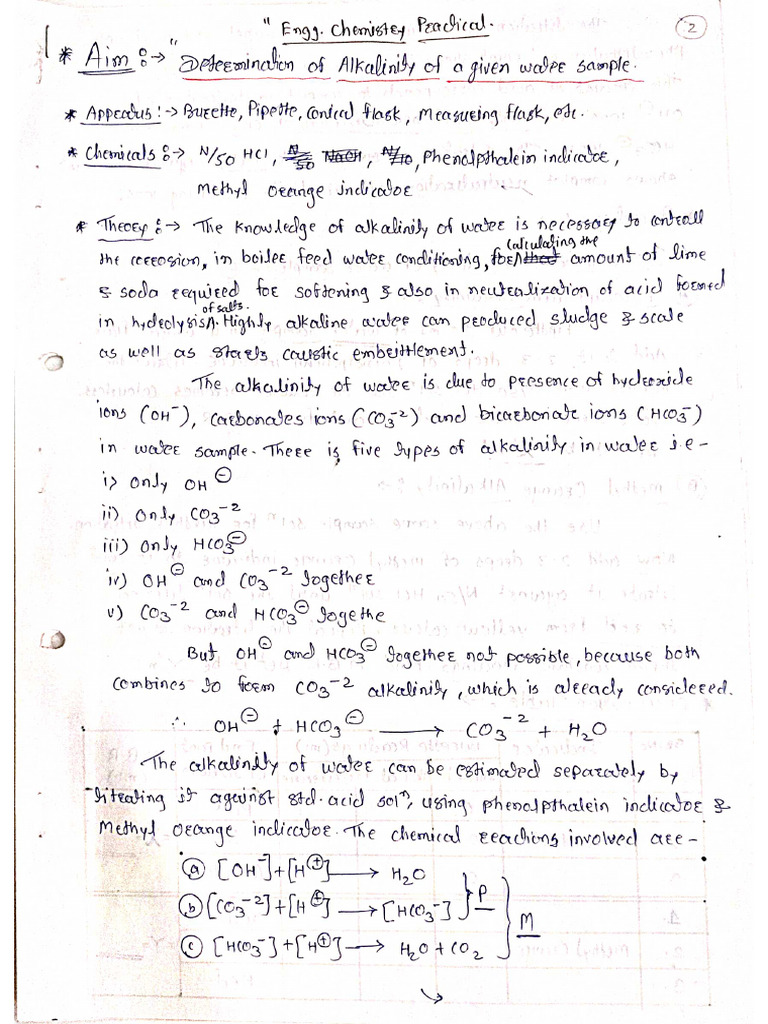 " Engg. Chemistry Practical.
2
* Aim :→ " Determination of Alkalinity of a given water sample.
* Apperatus :→ Burette, Pipette, conical flask, Measuring flask, etc.
* Chemicals :→ N/50 HCl, N/50 NaOH, N/10, Phenolpthalein indicator,
Methyl orange indicator
* Theory :→ The knowledge of alkalinity of water is necessary to controll
the corrosion, in boiler feed water conditioning, for calculating the amount of lime
& soda required for softening & also in neutralization of acid formed
in hydrolysis of salts. Highly alkaline water can produced sludge & scale
as well as starts caustic embrittlement.
The alkalinity of water is due to presence of hydroxide
ions (OH⁻), carbonates ions (CO₃⁻²) and bicarbonate ions (HCO₃⁻)
in water sample. There is five types of alkalinity in water i.e -
i) Only OH⊖
ii) Only CO₃⁻²
iii) Only HCO₃⊖
iv) OH⊖ and CO₃⁻² together
v) CO₃⁻² and HCO₃⊖ togethe
But OH⊖ and HCO₃⊖ together not possible, because both
combines to form CO₃⁻² alkalinity, which is already considered.
∴ OH⊖ + HCO₃⊖ ⟶ CO₃⁻² + H₂O
The alkalinity of water can be estimated separately by
titrating it against std. acid solⁿ, using phenolpthalein indicator &
Methyl orange indicator. The chemical reactions involved are -
ⓐ [OH⁻] + [H⊕] ⟶ H₂O
ⓑ [CO₃⁻²] + [H⊕] ⟶ [HCO₃⁻] } P
ⓒ [HCO₃⁻] + [H⊕] ⟶ H₂O + CO₂ } M